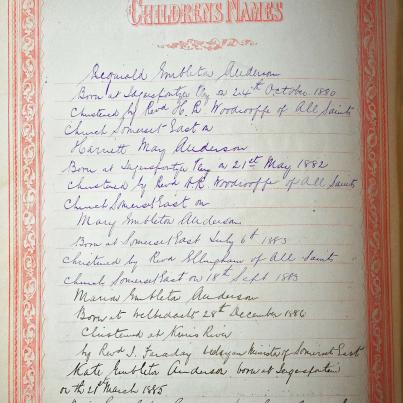 CHILDRENS NAMES
Reginald Embleton Anderson
Born at Jagersfontein on 24th October 1880
Christened by Revd H. R Woodrooffe of All Saints
Church Somerset East on
Harriett May Anderson
Born at Jagersfontein on 21st May 1882
Christened by Revd H.R. Woodrooffe of All Saints
Church Somerset East on
Mary Embleton Anderson
Born at Somerset East July 6th 1883
Christened by Revd Ellingham of All Saints
Church Somerset East on 18th Sept 1883
Embleton Anderson
Born at 28th December 1886
Christened at River
by Revd J. Faraday Wesleyan Minister of Somerset East
Kate Embleton Anderson born at Jagersfontein
on the 21st March 1885